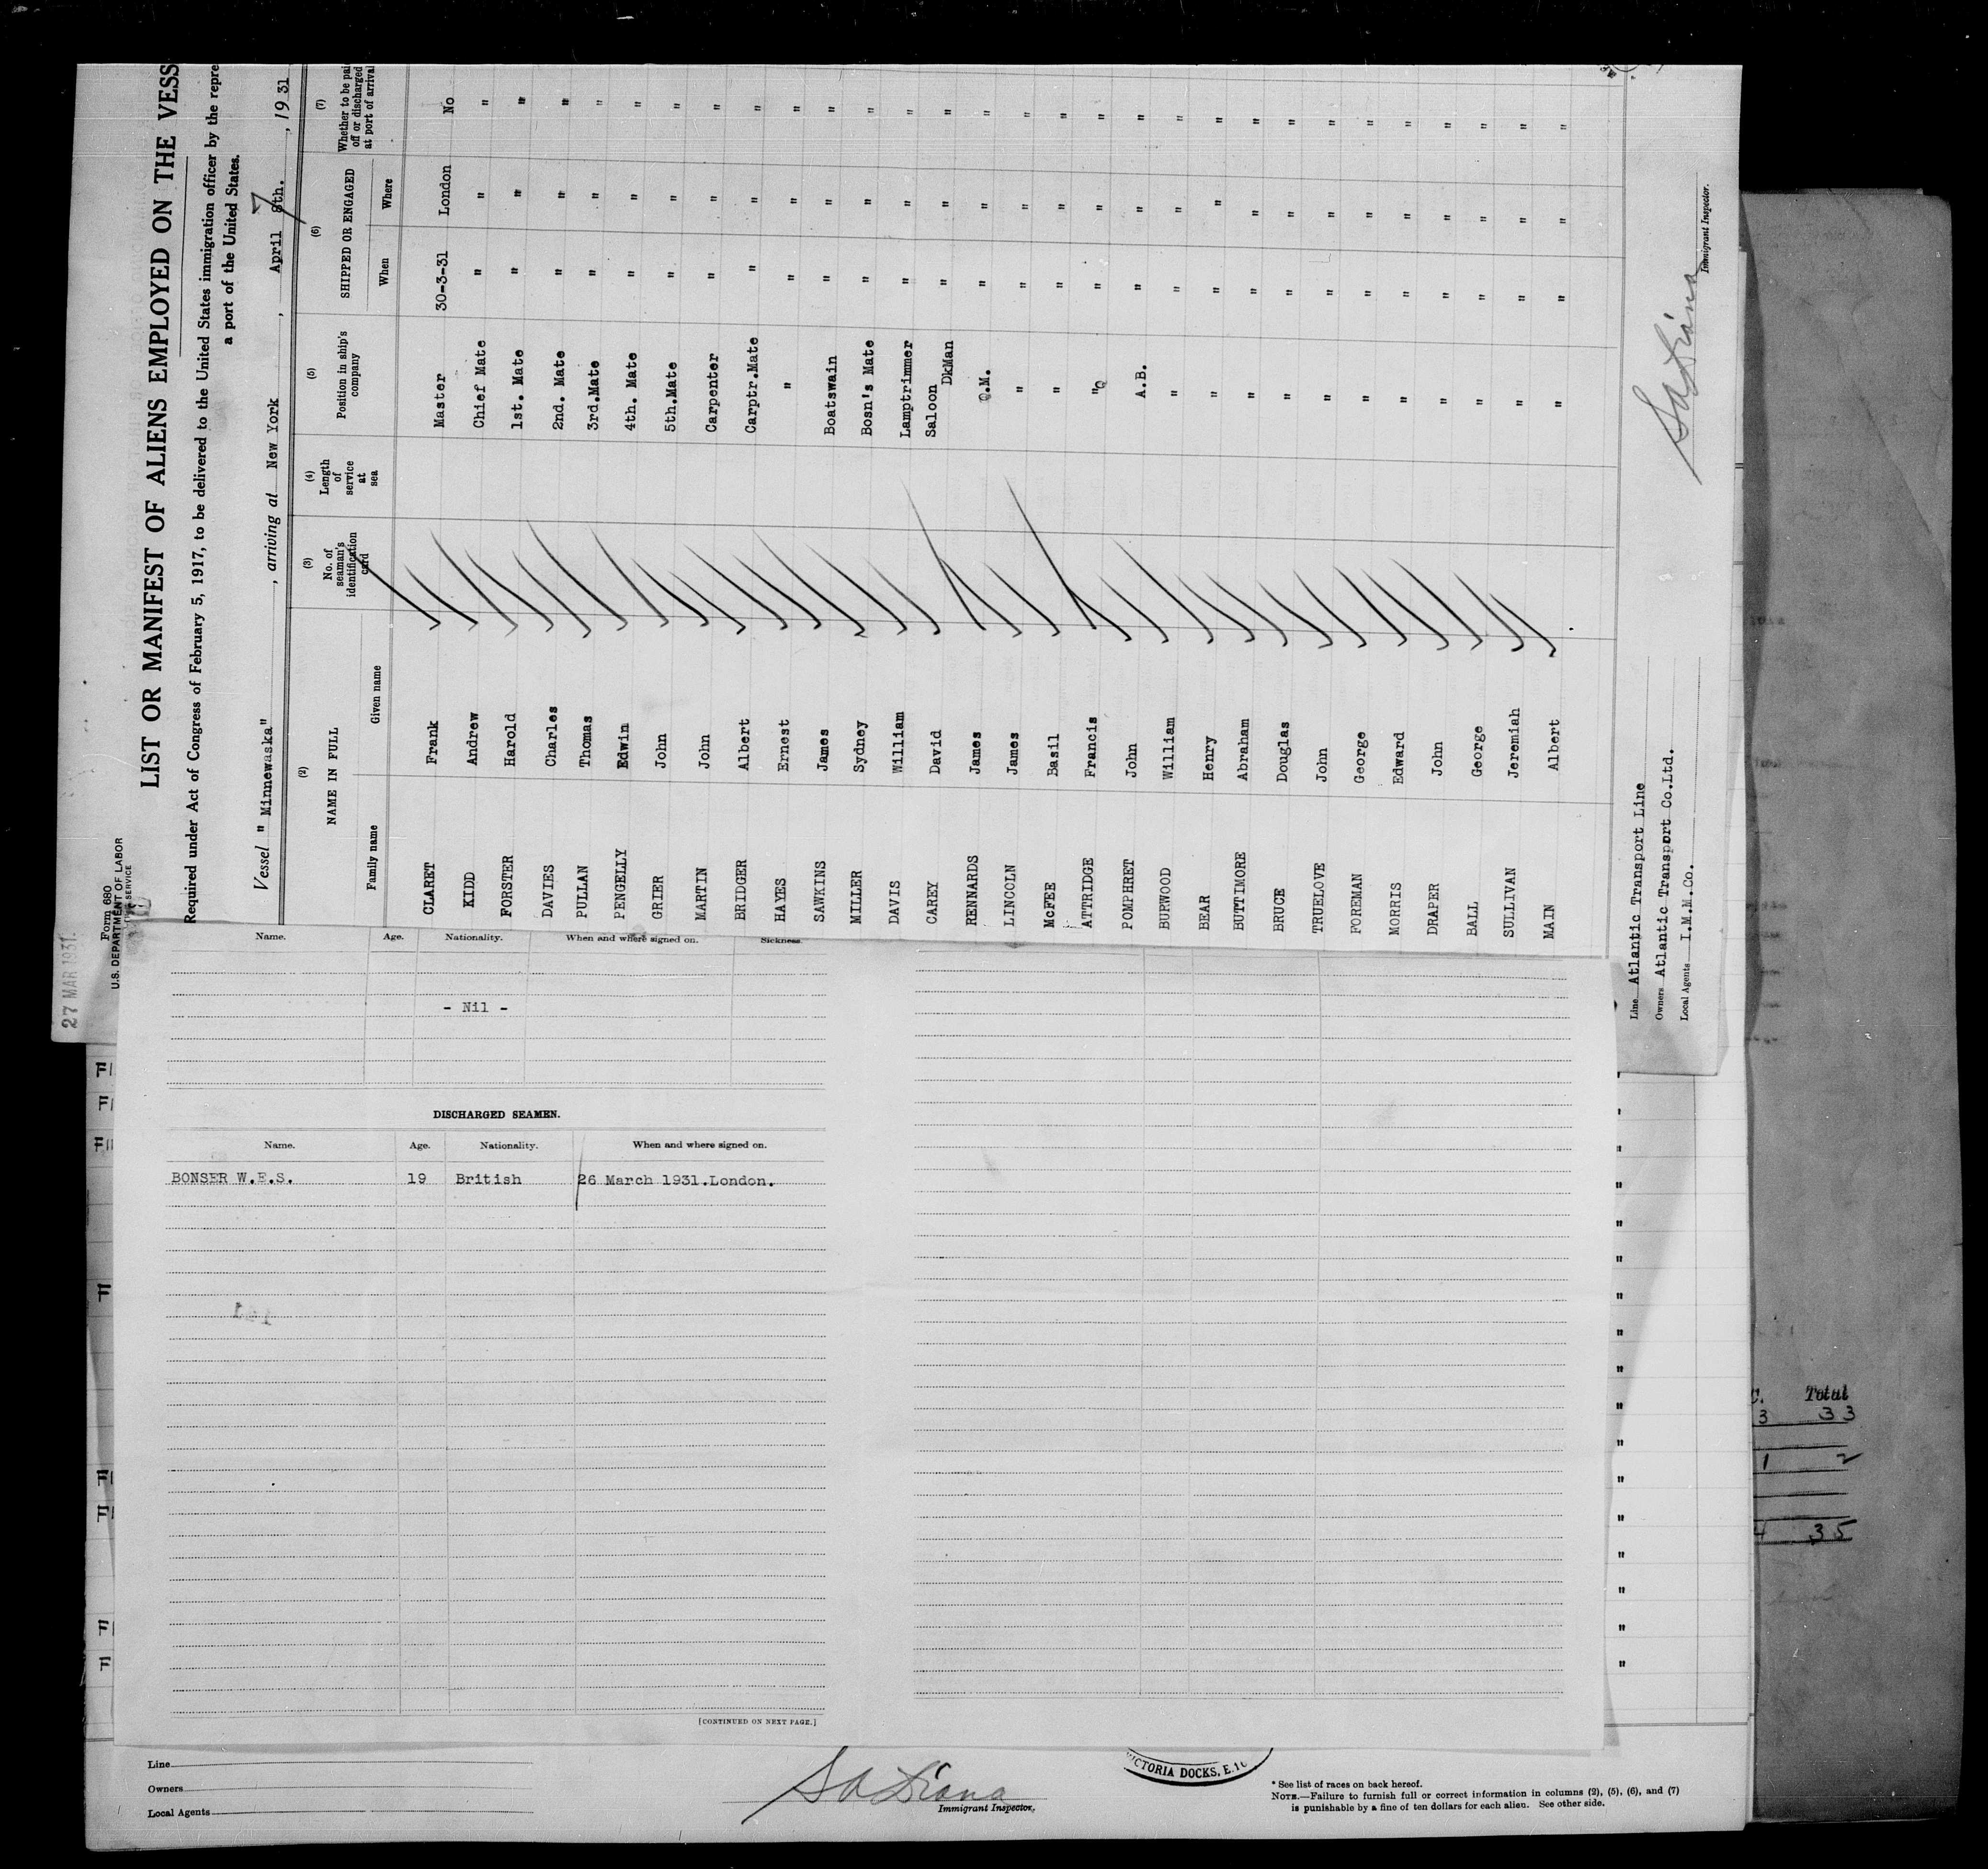 27 MAR 1931.
Form 680
U.S. DEPARTMENT OF LABOR
LIST OR MANIFEST OF ALIENS EMPLOYED ON THE VESS
Required under Act of Congress of February 5, 1917, to be delivered to the United States immigration officer by the repre
a port of the United States.
Vessel " Minnewaska" , arriving at New York , April 8th. 7 , 1931
(2) (3) (4) (5) (6) (7)
NAME IN FULL No. of seaman's identification card Length of service at sea Position in ship's company SHIPPED OR ENGAGED Whether to be paid off or discharged at port of arrival
Family name Given name When Where
CLARET Frank Master 30-3-31 London No
KIDD Andrew Chief Mate " " "
FORSTER Harold 1st. Mate " " "
DAVIES Charles 2nd. Mate " " "
PULLAN Thomas 3rd.Mate " " "
PENGELLY Edwin 4th. Mate " " "
GRIER John 5th.Mate " " "
MARTIN John Carpenter " " "
BRIDGER Albert Carptr.Mate " " "
HAYES Ernest " " " "
SAWKINS James Boatswain " " "
MILLER Sydney Bosn's Mate " " "
DAVIS William Lamptrimmer " " "
CAREY David Saloon DkMan " " "
RENNARDS James Q.M. " " "
LINCOLN James " " " "
McFEE Basil " " " "
ATTRIDGE Francis " " " "
POMPHRET John A.B. " " "
BURWOOD William " " " "
BEAR Henry " " " "
BUTTIMORE Abraham " " " "
BRUCE Douglas " " " "
TRUELOVE John " " " "
FOREMAN George " " " "
MORRIS Edward " " " "
DRAPER John " " " "
BALL George " " " "
SULLIVAN Jeremiah " " " "
MAIN Albert " " " "
Line Atlantic Transport Line
Owners Atlantic Transport Co.Ltd.
Local Agents I.M.M.Co.
Immigrant Inspector.
Name. Age. Nationality. When and where signed on. Sickness.
- Nil -
DISCHARGED SEAMEN.
Name. Age. Nationality. When and where signed on.
BONSER W.E.S. 19 British 26 March 1931.London.
[CONTINUED ON NEXT PAGE.]
C. Total
3 33
1 2
4 35
Line
Owners
Local Agents
Immigrant Inspector.
VICTORIA DOCKS, E.16
* See list of races on back hereof.
NOTE.—Failure to furnish full or correct information in columns (2), (5), (6), and (7)
is punishable by a fine of ten dollars for each alien. See other side.